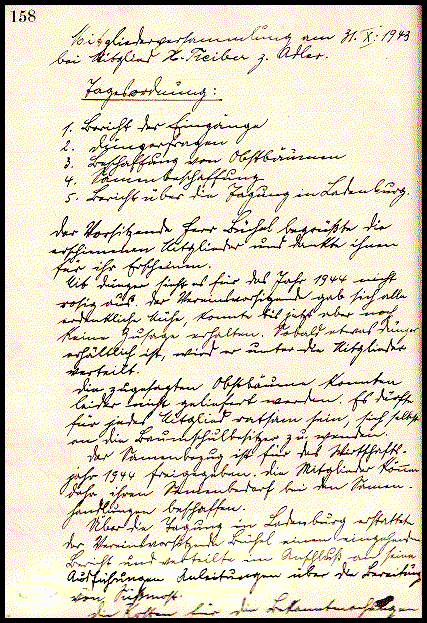 158
Mitgliederversammlung am 31. X. 1943
bei Mitglied H. Treiber z. Adler.
Tagesordnung:
1. Bericht der Eingänge
2. Düngerfragen
3. Beschaffung von Obstbäumen
4. Samenbeschaffung
5. Bericht über die Tagung in Ladenburg.
Der Vorsitzende Herr Bühel begrüßte die
erschienenen Mitglieder und dankte ihnen
für ihr Erscheinen.
Mit Dünger sieht es für das Jahr 1944 nicht
rosig aus. Der Vereinsvorsitzende gab sich alle
erdenkliche Mühe, konnte bis jetzt aber noch
keine Zusage erhalten. Sobald etwas Dünger
erhältlich ist, wird er unter die Mitglieder
verteilt.
Die zugesagten Obstbäume konnten
leider nicht geliefert werden. Es dürfte
für jedes Mitglied ratsam sein, sich selbst
an die Baumschulbesitzer zu wenden.
Der Samenbezug ist für das Wirtschafts-
jahr 1944 freigegeben. Die Mitglieder können
daher ihren Samenbedarf bei den Samen-
handlungen beschaffen.
Über die Tagung in Ladenburg erstattete
der Vereinsvorsitzende Bühel einen eingehenden
Bericht und verteilte im Anschluß an seine
Ausführungen Anleitungen über die Bereitung
von Süßmost.
Die Kosten für die Bekanntmachungen